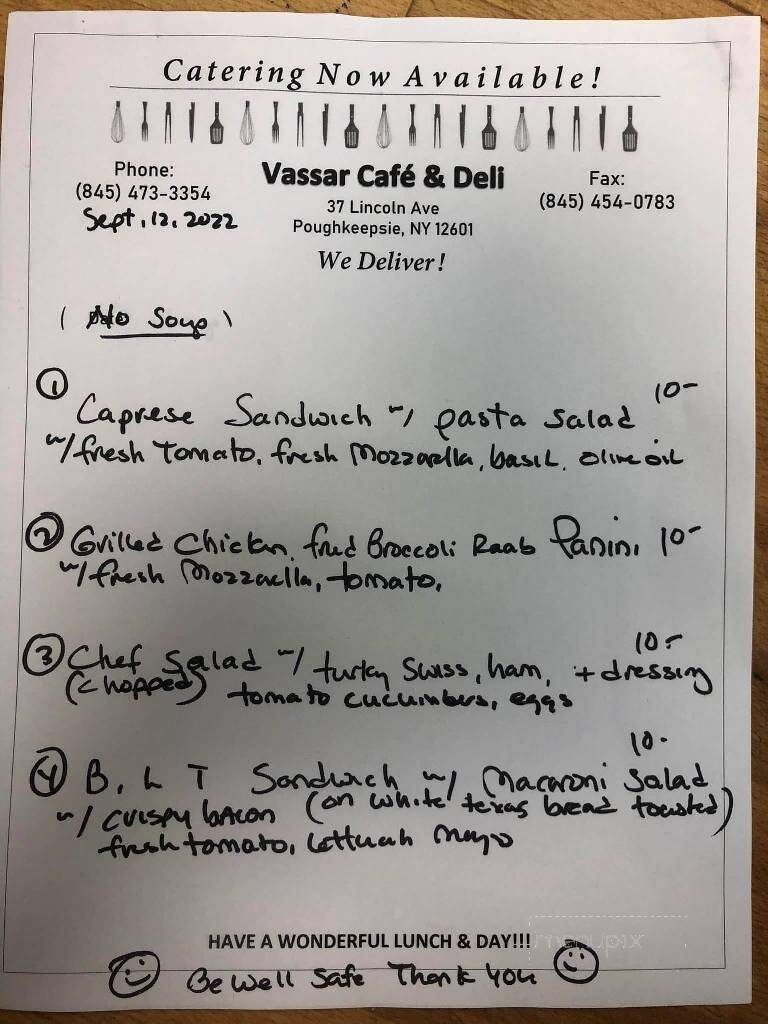 Catering Now Available!
Phone:
(845) 473-3354
Sept, 12, 2022
Vassar Café & Deli
37 Lincoln Ave
Poughkeepsie, NY 12601
We Deliver!
Fax:
(845) 454-0783
( No Soup )
1 Caprese Sandwich w/ pasta salad 10-
w/fresh Tomato, fresh Mozzarella, basil, olive oil
2 Grilled Chicken, fried Broccoli Raab Panini 10-
w/fresh Mozzarella, tomato,
3 Chef Salad w/ turkey Swiss, ham, + dressing 10-
(chopped) tomato cucumbers, eggs
4 B, L T Sandwich w/ Macaroni Salad 10-
w/ crispy bacon (on white texas bread toasted)
fresh tomato, lettuce Mayo
HAVE A WONDERFUL LUNCH & DAY!!!
menupix
Be Well Safe Thank You